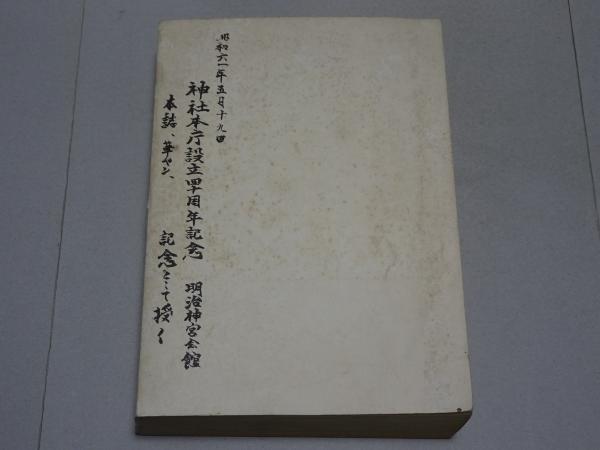 昭和六一年五月十九日
神社本庁設立四十周年記念 明治神宮会館
本誌、華ヤン、 記念として授く